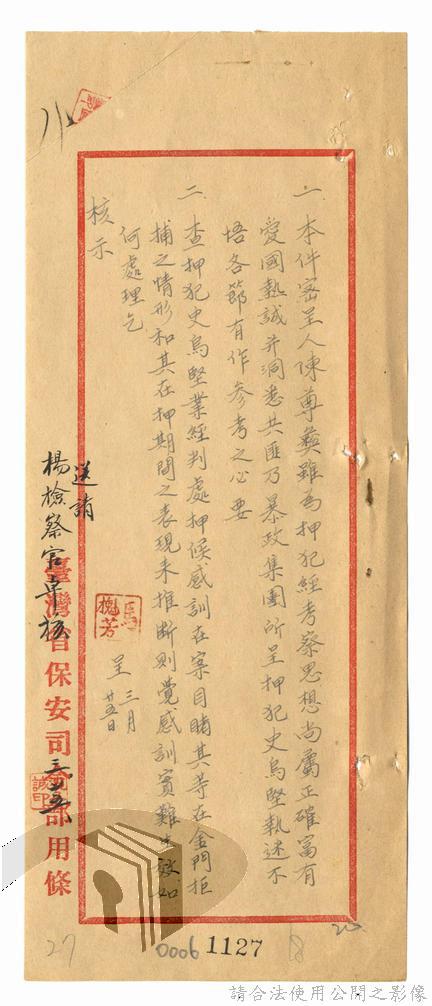 一、本件密呈人陳尊彝雖為押犯經考察思想尚屬正確富有
愛國熱誠并洞悉共匪乃暴政集團所呈押犯史烏堅執迷不
悟各節有作參考之必要
二、查押犯史烏堅業經判處押候感訓在案目睹其等在金門拒
捕之情形和其在押期間之表現來推斷則覺感訓實難生效如
何處理乞
核示
馬槐芳
呈 三月廿五日
送請
楊檢察官卓核
臺灣省保安司令部用條
0006 1127
27
請合法使用公開之影像